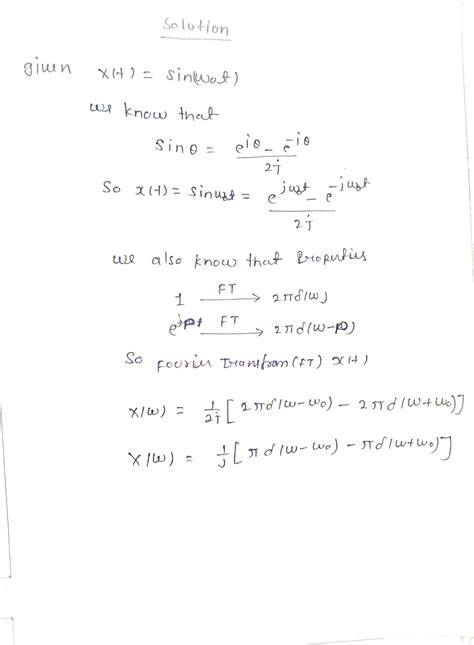 Solution
given x(t) = sin(ω₀t)
we know that
sin θ = (e^{jθ} - e^{-jθ}) / 2j
So x(t) = sin ω₀t = (e^{jω₀t} - e^{-jω₀t}) / 2j
we also know that properties
1 —FT→ 2πδ(ω)
e^{jpt} —FT→ 2πδ(ω-p)
So fourier Transform (FT) x(t)
X(ω) = 1/2j [2πδ(ω-ω₀) - 2πδ(ω+ω₀)]
X(ω) = 1/j [πδ(ω-ω₀) - πδ(ω+ω₀)]